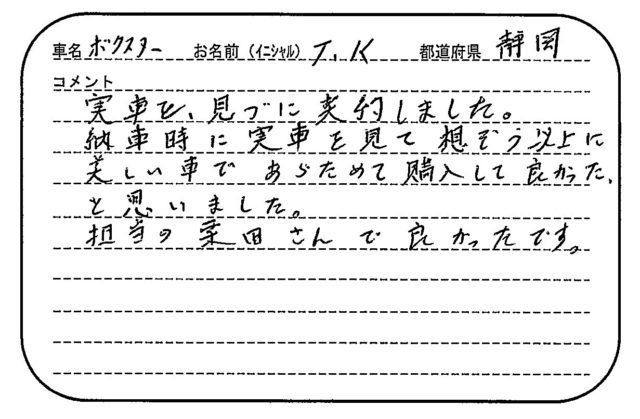 車名 ボクスター お名前（イニシャル） T.K 都道府県 静岡
コメント
実車を、見づに契約しました。
納車時に実車を見て想ぞう以上に
美しい車で あらためて購入して良かった、
と思いました。
担当の 田さんで良かったです。